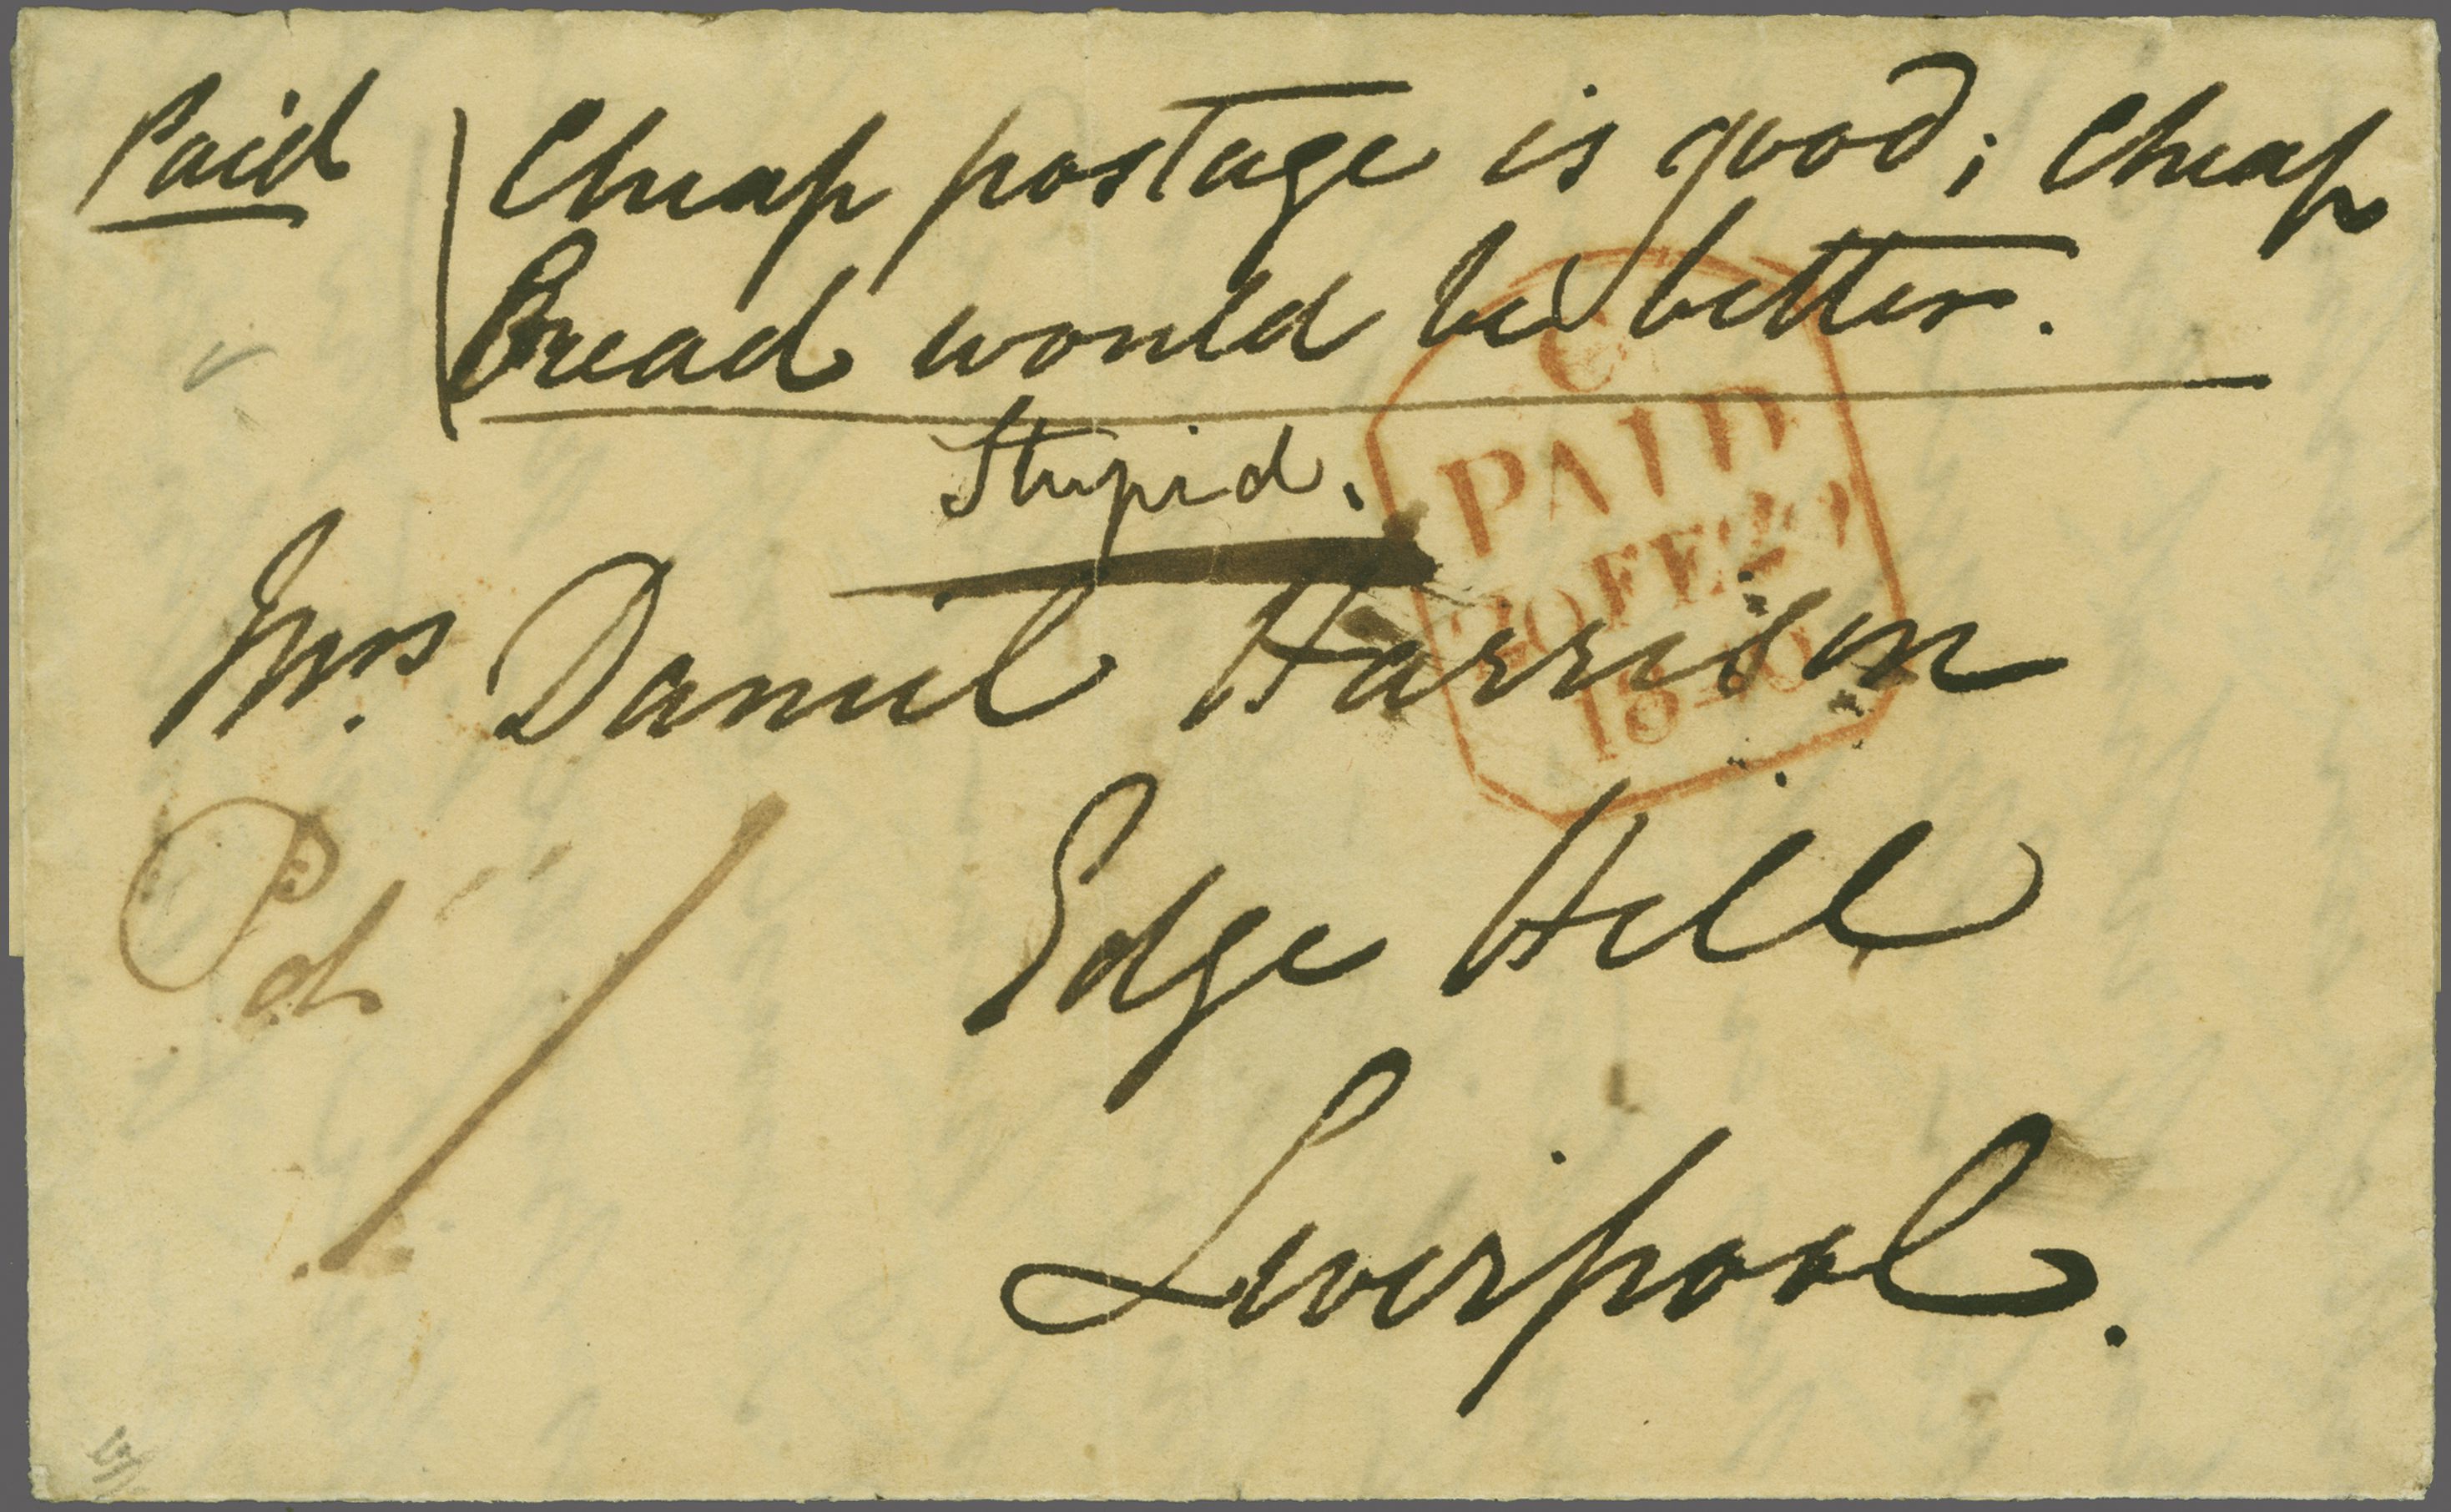 Paid
Cheap postage is good; Cheap
Bread would be better.
Stupid.
C
PAID
20 FE 20
1840
Mrs. Daniel Harrison
Pd 1/
Edge Hill
Liverpool.